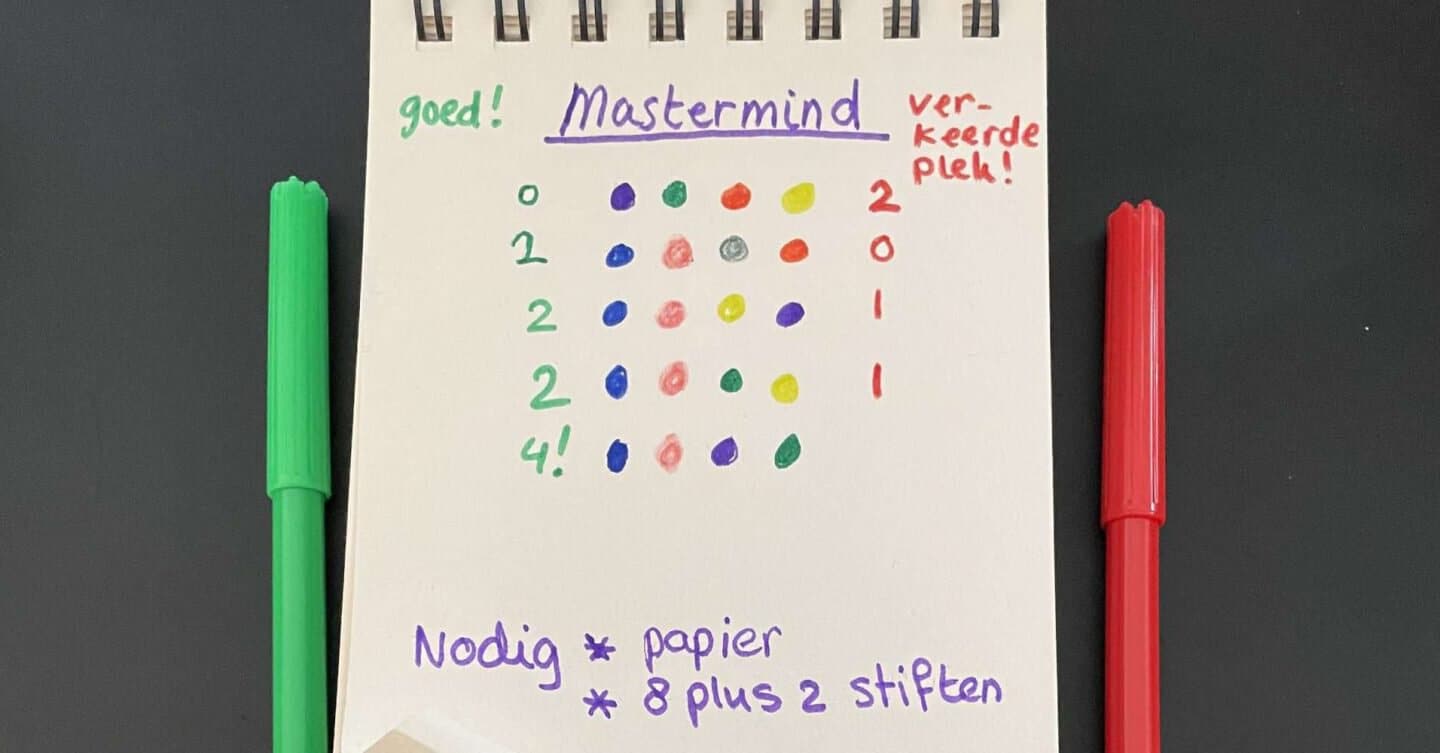 goed! Mastermind ver-
keerde
plek!
0 2
2 0
2 1
2 1
4!
Nodig * papier
* 8 plus 2 stiften